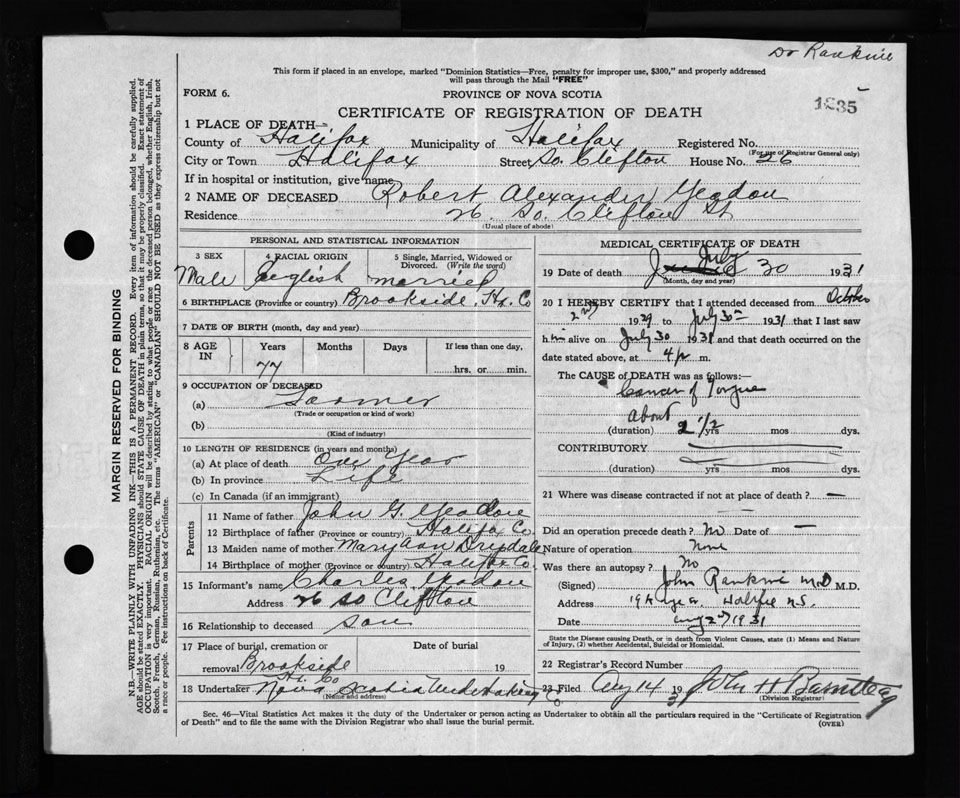 Dr Rankine
This form if placed in an envelope, marked "Dominion Statistics—Free, penalty for improper use, $300," and properly addressed
will pass through the Mail "FREE"
FORM 6.
PROVINCE OF NOVA SCOTIA
CERTIFICATE OF REGISTRATION OF DEATH
1 PLACE OF DEATH—
County of Halifax Municipality of Halifax Registered No.
(For use of Registrar General only)
City or Town Halifax Street So. Clifton House No. 26
If in hospital or institution, give name
2 NAME OF DECEASED Robert Alexander Yeadon
Residence 26 So. Clifton St
(Usual place of abode)
PERSONAL AND STATISTICAL INFORMATION
3 SEX 4 RACIAL ORIGIN 5 Single, Married, Widowed or
Divorced. (Write the word)
Male English married
6 BIRTHPLACE (Province or country) Brookside, Hx. Co
7 DATE OF BIRTH (month, day and year)
8 AGE IN Years Months Days If less than one day,
77 hrs. or min.
9 OCCUPATION OF DECEASED
(a) Farmer
(Trade or occupation or kind of work)
(b)
(Kind of industry)
10 LENGTH OF RESIDENCE (in years and months)
(a) At place of death One Year
(b) In province Life
(c) In Canada (if an immigrant)
Parents
11 Name of father John G. Yeadon
12 Birthplace of father (Province or country) Halifax Co.
13 Maiden name of mother Mary Ann Drysdale
14 Birthplace of mother (Province or country) Halifax Co.
15 Informant's name Charles Yeadon
Address 26 So Clifton
16 Relationship to deceased son
17 Place of burial, cremation or Date of burial
removal Brookside 19
Hx. Co
18 Undertaker Nova Scotia Undertaking Co
(Name and address)
MEDICAL CERTIFICATE OF DEATH
July
19 Date of death 30 1931
(Month, day and year)
20 I HEREBY CERTIFY that I attended deceased from October
2nd 1929 to July 30th 1931 that I last saw
him alive on July 30 1931 and that death occurred on the
date stated above, at 4 p m.
The CAUSE of DEATH was as follows:—
Cancer of Tongue
About
(duration) 2 1/2 yrs mos dys.
CONTRIBUTORY
(duration) yrs mos dys.
21 Where was disease contracted if not at place of death? —
Did an operation precede death? No Date of —
Nature of operation None
Was there an autopsy? No
(Signed) John Rankine M.D M.D.
Address Halifax N.S.
Date Aug 2nd 1931
State the Disease causing Death, or in death from Violent Causes, state (1) Means and Nature
of Injury, (2) whether Accidental, Suicidal or Homicidal.
22 Registrar's Record Number
23 Filed Aug 14 1931 John H Barnstead
(Division Registrar)
Sec. 46—Vital Statistics Act makes it the duty of the Undertaker or person acting as Undertaker to obtain all the particulars required in the "Certificate of Registration
of Death" and to file the same with the Division Registrar who shall issue the burial permit.
(OVER)
MARGIN RESERVED FOR BINDING
N.B.—WRITE PLAINLY WITH UNFADING INK—THIS IS A PERMANENT RECORD. Every item of information should be carefully supplied.
AGE should be stated EXACTLY. PHYSICIANS should STATE CAUSE OF DEATH in plain terms, so that it may be properly classified. Exact statement of
OCCUPATION is very important. RACIAL ORIGIN will be described by stating to what people or race the deceased person belonged, whether English, Irish,
Scotch, French, German, Russian, Ruthenian, etc. The terms "AMERICAN" or "CANADIAN" SHOULD NOT BE USED as they express citizenship but not
a race or people. Fee instructions on back of Certificate.